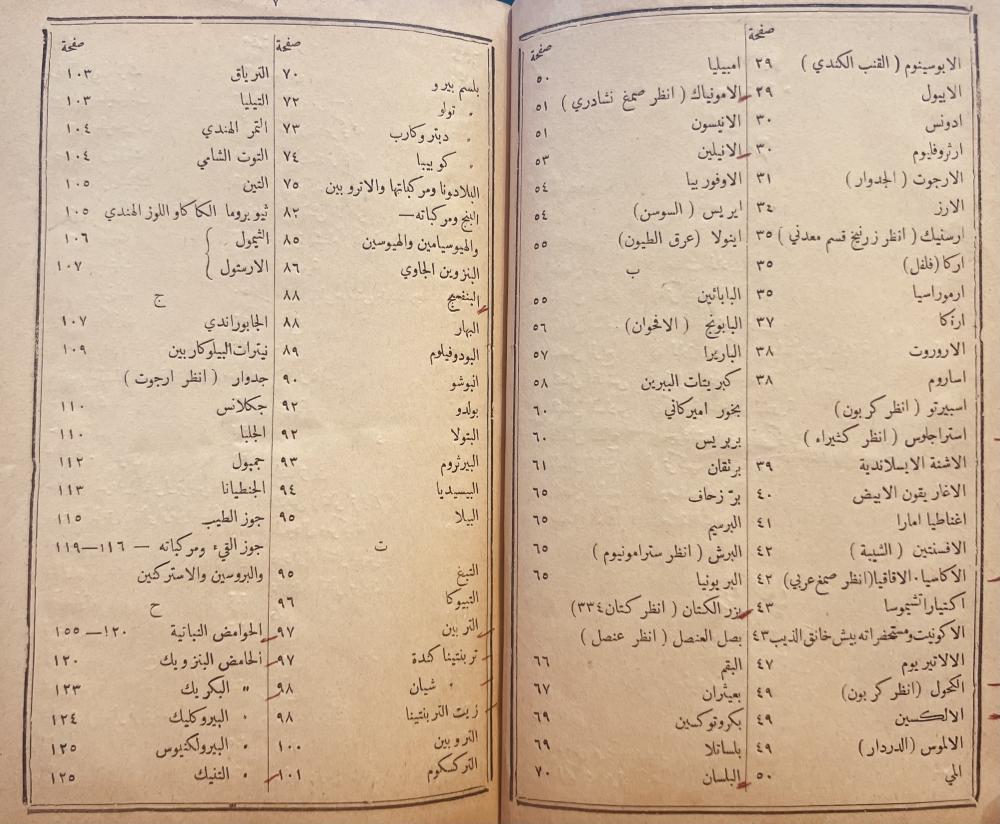 صفحة
الابوسينوم ( القنب الكندي ) ٢٩
الابيول ٢٩
ادونس ٣٠
ارثروفايوم ٣٠
الارجوت ( الجدوار ) ٣١
الارز ٣٤
ارسنيك ( انظر زرنيخ قسم معدني ) ٣٥
اركا (فلفل) ٣٥
ارموراسيا ٣٥
ارنكا ٣٧
الاروروت ٣٨
اساروم ٣٨
اسبيرتو ( انظر كربون )
استراجلوس ( انظر كثيراء )
الاشنة الايسلاندية ٣٩
الاغاريقون الابيض ٤٠
اغناطيا امارا ٤١
الافسنتين ( الشيبة ) ٤٢
الاكاسيا . الاقاقيا (انظر صمغ عربي) ٤٢
اكتياراتشيموسا ٤٣
الاكونيت ومستحضراته بيش خانق الذيب ٤٣
الالاتيريوم ٤٧
الكحول (انظر كربون) ٤٩
الالكسين ٤٩
الالموس (الدردار) ٤٩
المي ٥٠
صفحة
امبيليا ٥٠
الامونياك ( انظر صمغ نشادري ) ٥١
الانيسون ٥١
الانيلين ٥٣
الاوفوربيا ٥٤
ايريس ( السوسن) ٥٤
اينولا (عرق الطيون) ٥٥
ب
البابائين ٥٥
البابونج ( الاقحوان) ٥٦
الباريرا ٥٧
كبريتات الببرين ٥٨
بخور اميركاني ٦٠
بربريس ٦٠
برتقان ٦١
برّ زحاف ٦٥
البرسيم ٦٥
البرش ( انظر سترامونيوم ) ٦٥
البريونيا ٦٥
بزر الكتان ( انظر كتان ٣٣٤)
بصل العنصل ( انظر عنصل )
البقم ٦٦
بعيثران ٦٧
بكروتوكسين ٦٩
بلساتلا ٦٩
البلسان ٧٠
٧
صفحة
بلسم بيرو ٧٠
. تولو ٧٢
. دبتروكارب ٧٣
. كوبيبا ٧٤
البلادونا ومركباتها والاتروبين ٧٥
البنج ومركباته— ٨٢
والهيوسيامين والهيوسين ٨٥
البنزوين الجاوي ٨٦
البنفسج ٨٨
البهار ٨٨
البودوفيلوم ٨٩
انبوشو ٩٠
بولدو ٩٢
البتولا ٩٢
البيرثروم ٩٣
البيسيديا ٩٤
البيلا ٩٥
ت
التبغ ٩٥
التبيوكا ٩٦
التربين ٩٧
تربنتينا كندة ٩٧
. شيان ٩٨
زيت التربنتينا ٩٨
التروبين ١٠٠
التركسكوم ١٠١
صفحة
الترياق ١٠٣
التيليا ١٠٣
التمر الهندي ١٠٤
التوت الشامي ١٠٤
التين ١٠٥
ثيوبروما الكاكاو اللوز الهندي ١٠٥
الثيمول ١٠٦
الارستول ١٠٧
ج
الجابوراندي ١٠٧
نيترات البيلوكاربين ١٠٩
جدوار ( انظر ارجوت )
جكلانس ١١٠
الجلبا ١١٠
جمبول ١١٢
الجنطيانا ١١٣
جوز الطيب ١١٥
جوز القيء ومركباته — ١١٦—١١٩
والبروسين والاستركنين
ح
الحوامض النباتية ١٢٠—١٥٥
الحامض البنزويك ١٢٠
" البكريك ١٢٣
. البيروكليك ١٢٤
. البيرولكنيوس ١٢٥
. التنيك ١٢٥